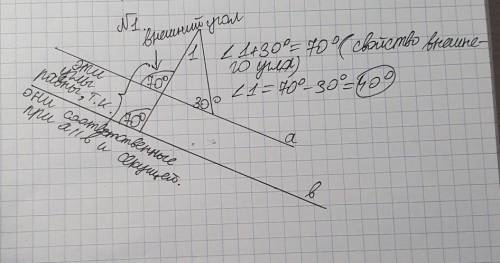 №1.
внешний угол
∠1+30°=70° (свойство внешне-
го угла)
∠1=70°-30°=40°
эти
углы
равны, т.к.
они соответственные
при a||в и секущей.
1
70°
30°
70°
a
в